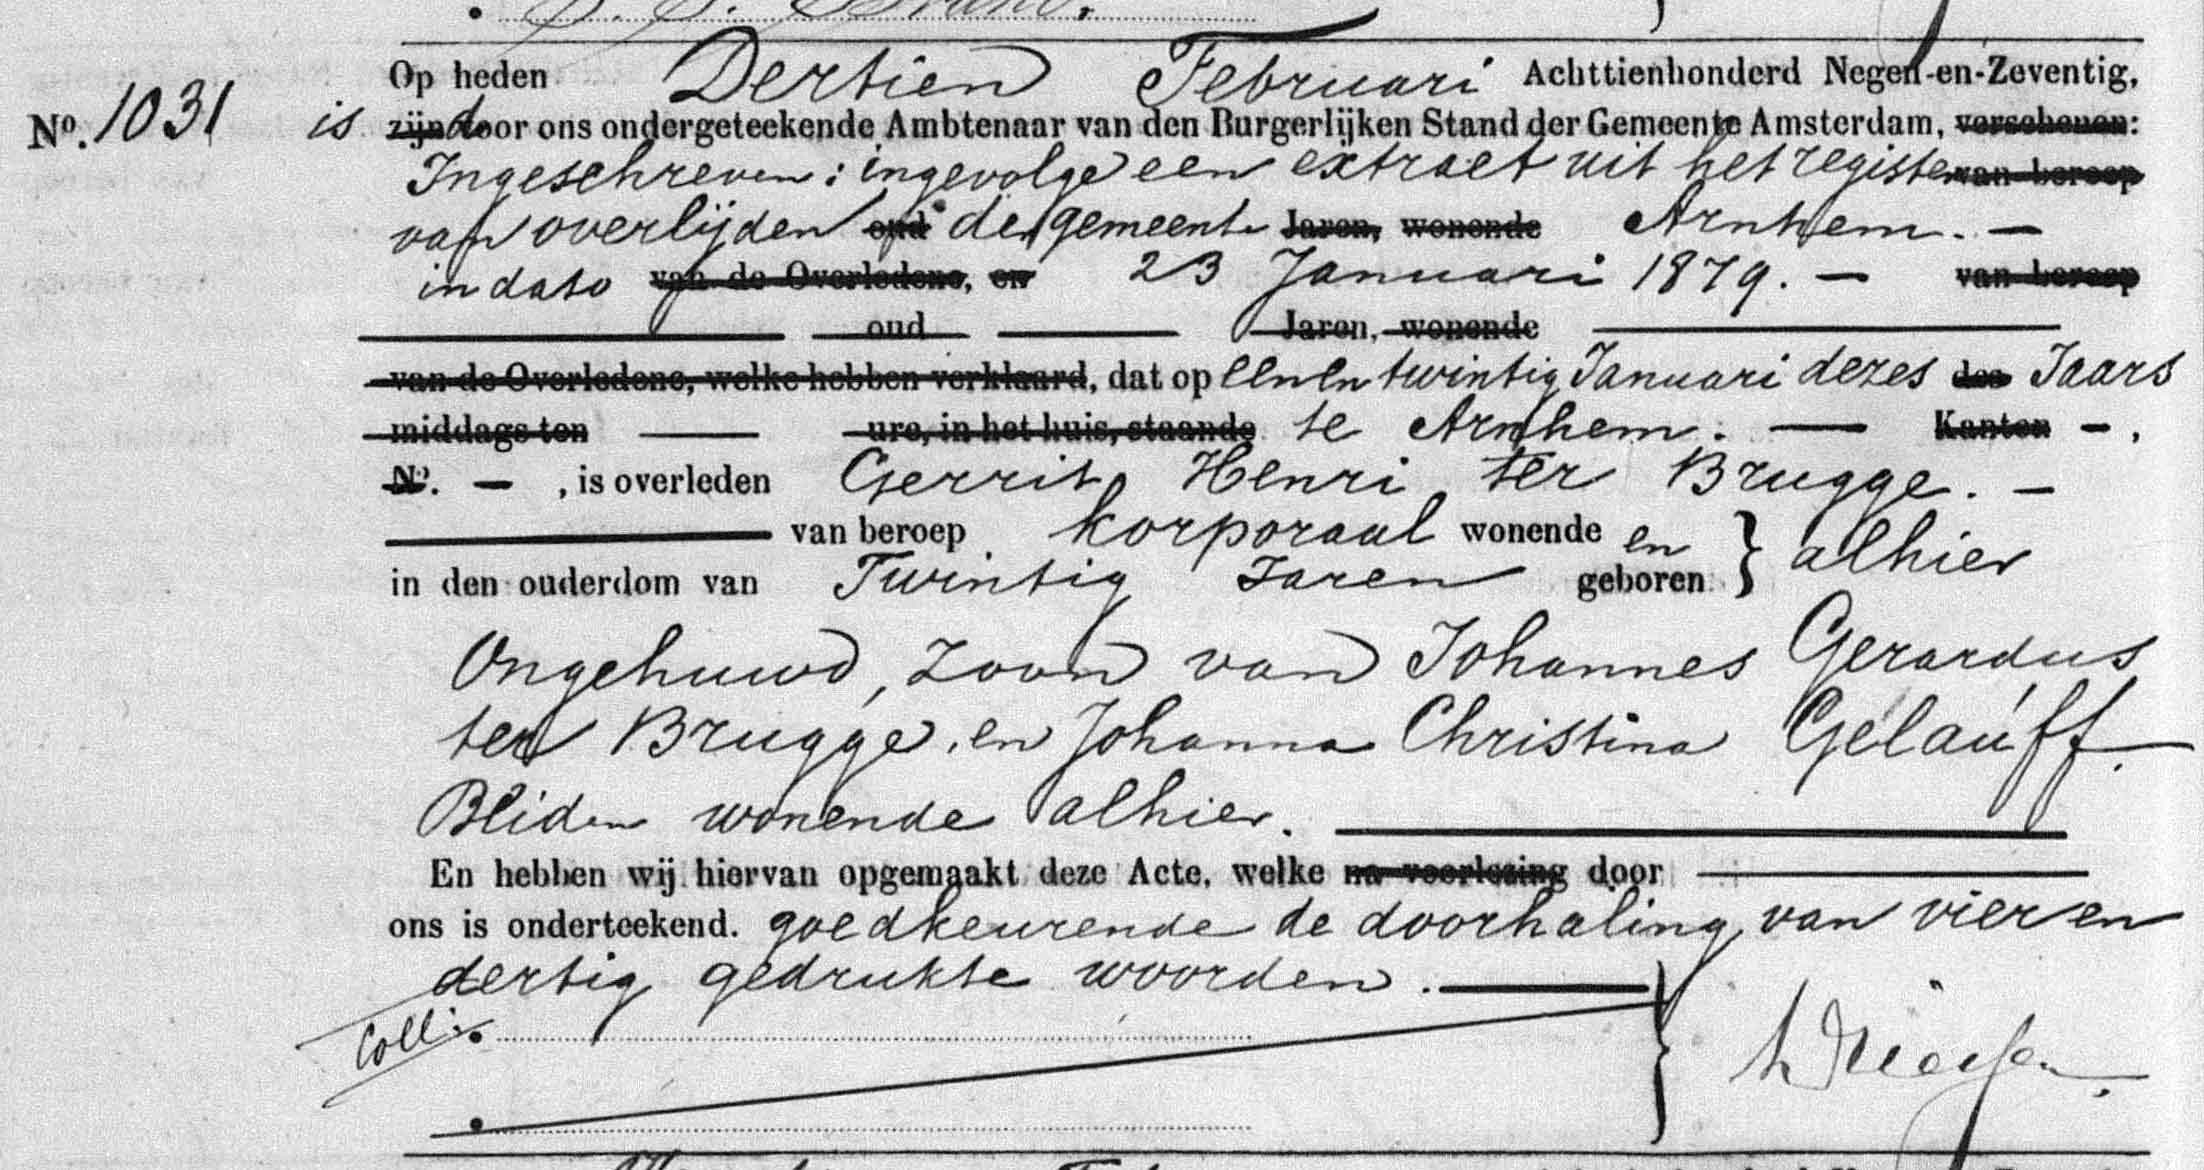 Op heden Dertien Februari Achttienhonderd Negen-en-Zeventig,
No. 1031 is zijn door ons ondergeteekende Ambtenaar van den Burgerlijken Stand der Gemeente Amsterdam, verschenen:
Ingeschreven: ingevolge een extract uit het register van beroep
van overlijden oud der gemeente Jaren, wonende Arnhem. —
in dato van de Overledene, en 23 Januari 1879. — van beroep
oud Jaren, wonende
van de Overledene, welke hebben verklaard, dat op een en twintig Januari dezes des Jaars
middags ten ure, in het huis, staande te Arnhem. — Kanton - ,
No. — , is overleden Gerrit Henri ter Brugge. —
van beroep korporaal wonende en } alhier
in den ouderdom van Twintig Jaren geboren
Ongehuwd, Zoon van Johannes Gerardus
ter Brugge, en Johanna Christina Gelauff.
Beiden wonende alhier.
En hebben wij hiervan opgemaakt deze Acte, welke na voorlezing door
ons is onderteekend. goedkeurende de doorhaling van vier en
dertig gedrukte woorden.
Coll: